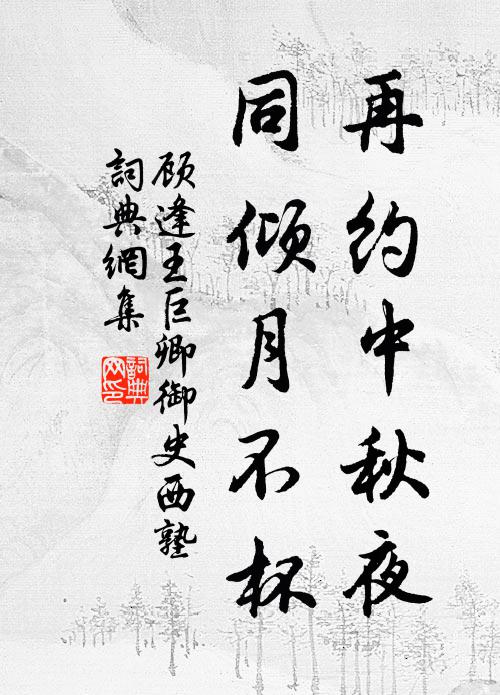 再约中秋夜
同倾月不杯
顾逢王巨卿御史西塾
詞典網集
詞典网印